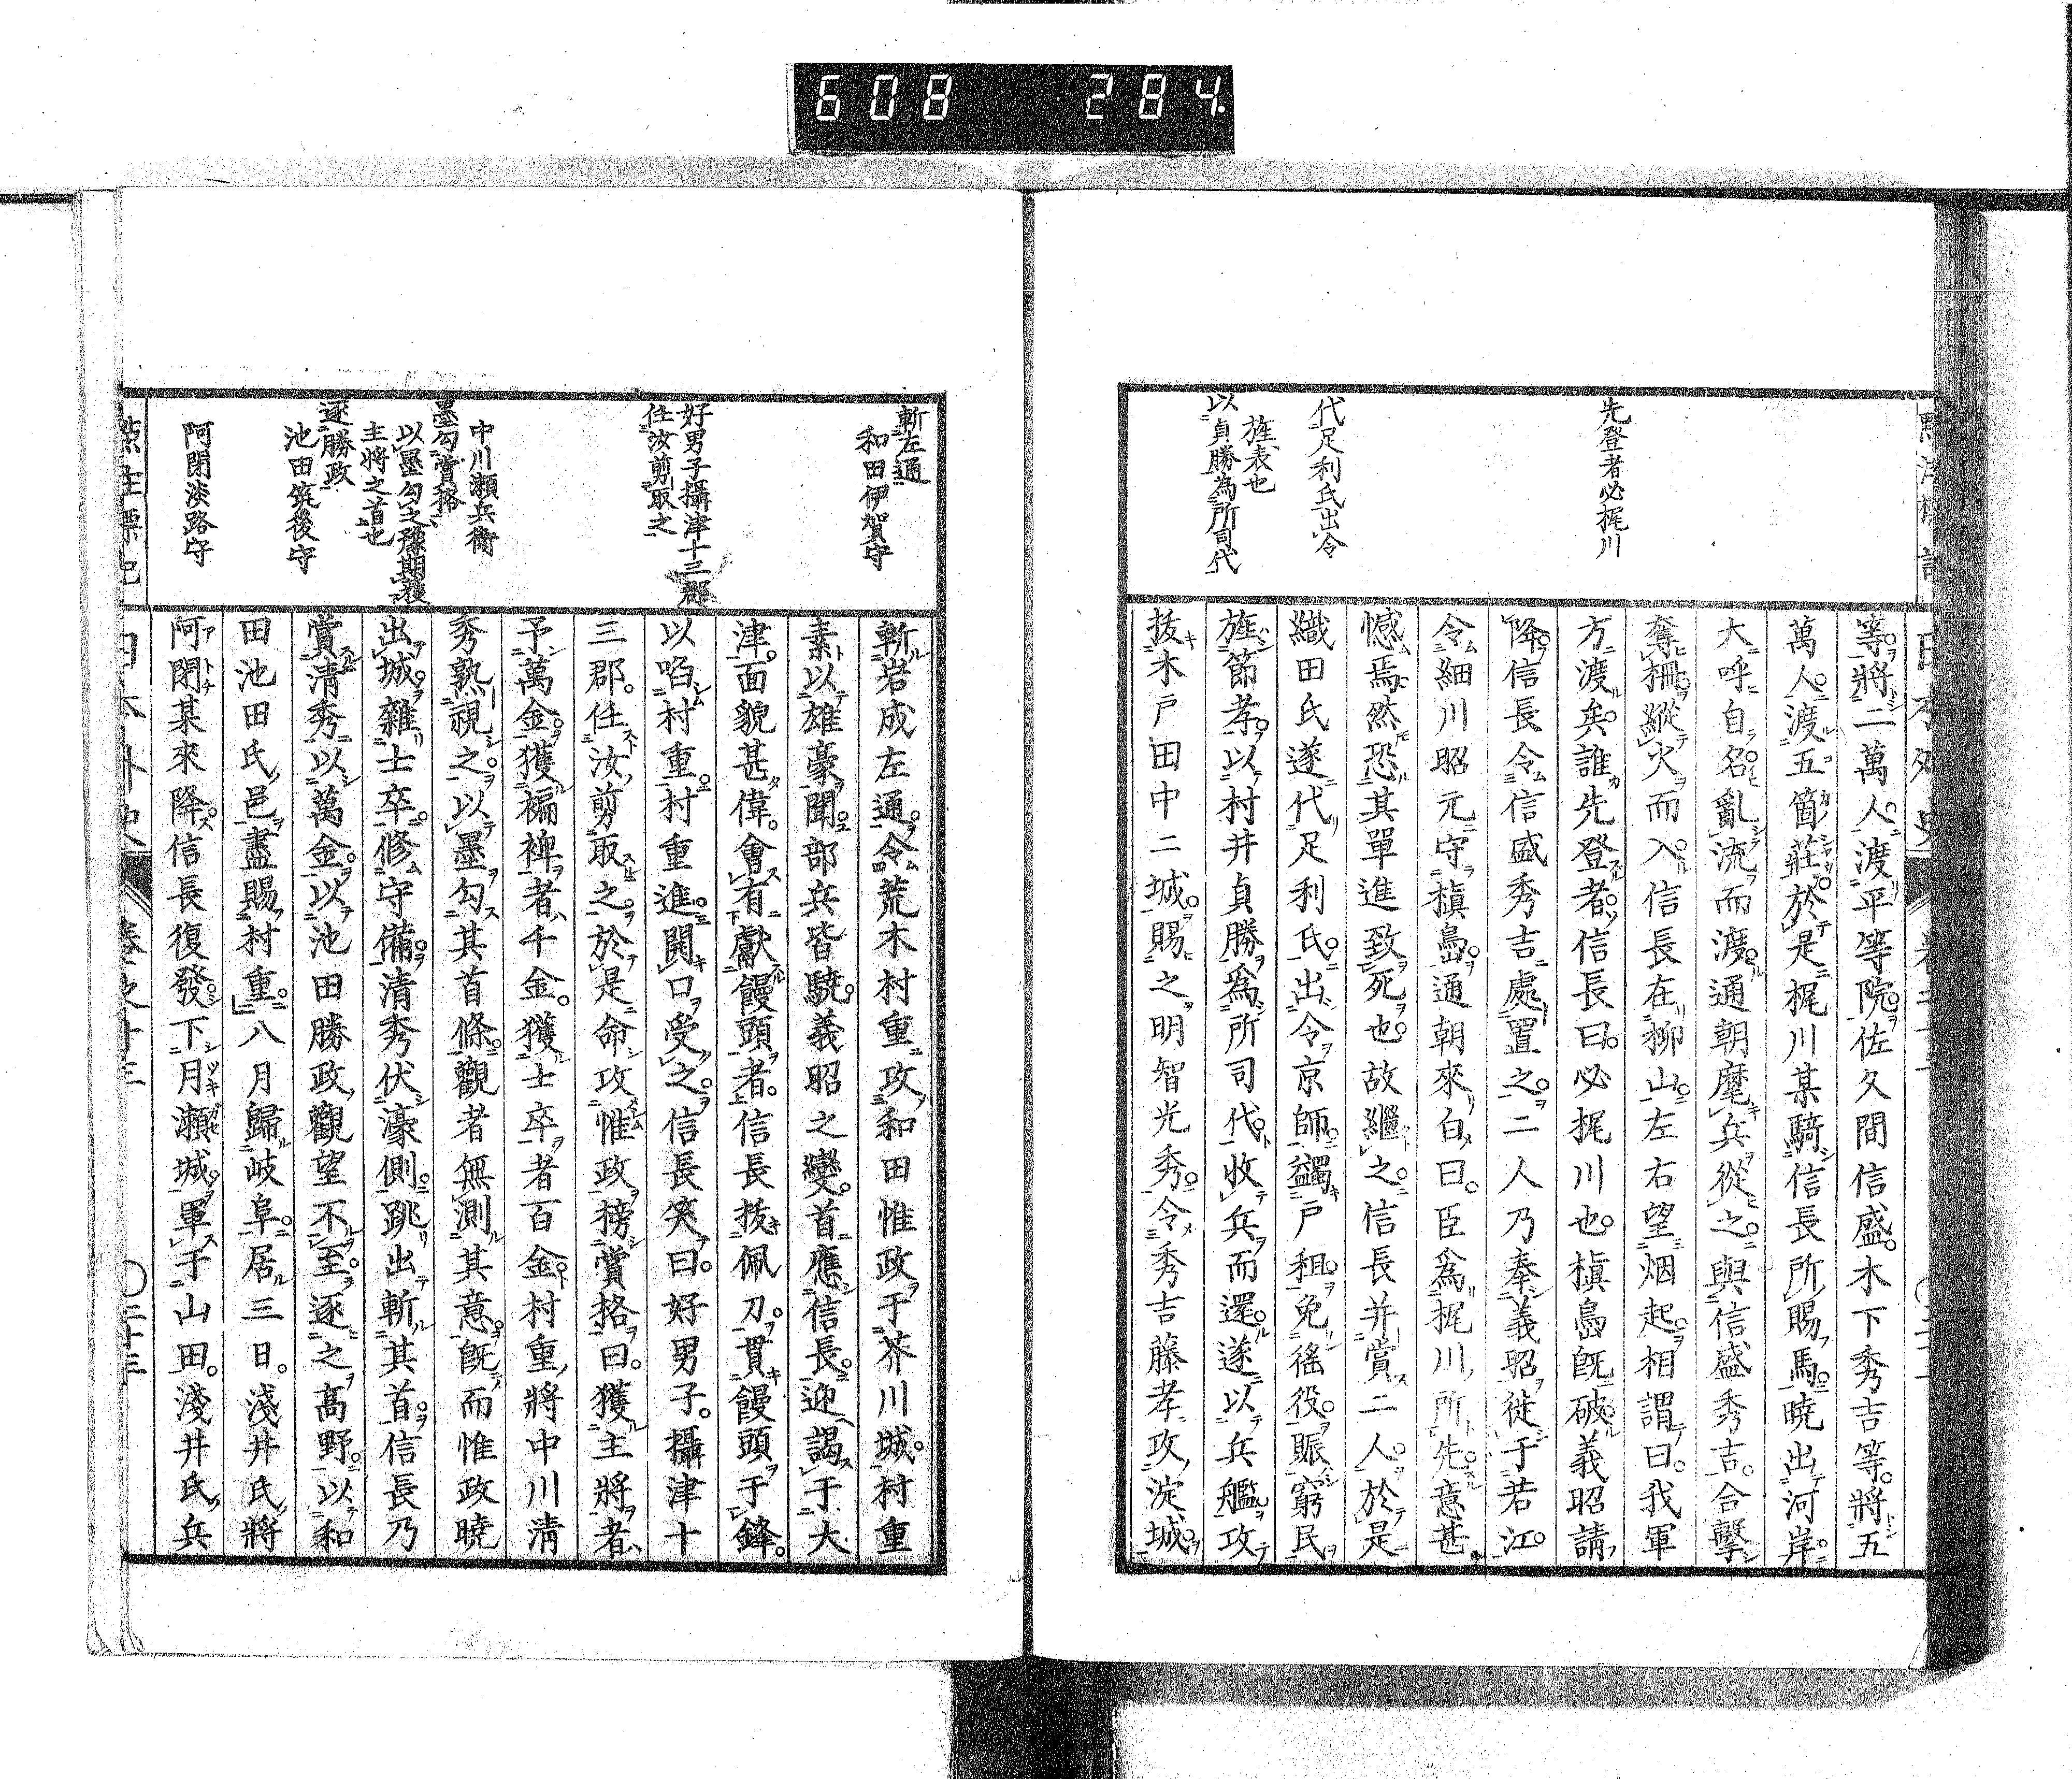 608 284
先登者必梶川
代足利氏出令
旌表也
以貞勝為所司代
等將二萬人渡平等院佐久間信盛木下秀吉等將五
萬人渡五箇莊於是梶川某騎信長所賜馬曉出河岸
大呼自名亂流而渡通朝麾兵從之與信盛秀吉合擊
奪柵縱火而入信長在柳山左右望烟起相謂曰我軍
方渡矣誰先登者信長曰必梶川也槇島既破義昭請
降信長令信盛秀吉處置之二人乃奉義昭徙于若江
令細川昭元守槇島通朝來白曰臣為梶川所先意甚
憾焉然恐其單進致死也故繼之信長并賞二人於是
織田氏遂代足利氏出令京師蠲戶租免徭役賑窮民
旌節孝以村井貞勝為所司代收兵而還遂以兵艦攻
拔木戶田中二城賜之明智光秀令秀吉藤孝攻淀城
斬左通
和田伊賀守
好男子攝津十三郡
任汝剪取之
中川瀬兵衞
墨勾賞格
以墨勾之豫期獲
主將之首也
逐勝政
池田筑後守
阿閉淡路守
斬岩成左通令荒木村重攻和田惟政于芥川城村重
素以雄豪聞部兵皆驍義昭之變首應信長迎謁于大
津面貌甚偉會有獻饅頭者信長拔佩刀貫饅頭于鋒
以啗村重村重進開口受之信長笑曰好男子攝津十
三郡任汝剪取之於是命攻惟政榜賞格曰獲主將者
予萬金獲褊裨者千金獲士卒者百金村重將中川清
秀熟視之以墨勾其首條觀者無測其意既而惟政曉
出城雜士卒修守備清秀伏濠側跳出斬其首信長乃
賞清秀以萬金以池田勝政觀望不至逐之高野以和
田池田氏邑盡賜村重八月歸岐阜居三日淺井氏將
阿閉某來降信長復發下月瀬城軍于山田淺井氏兵